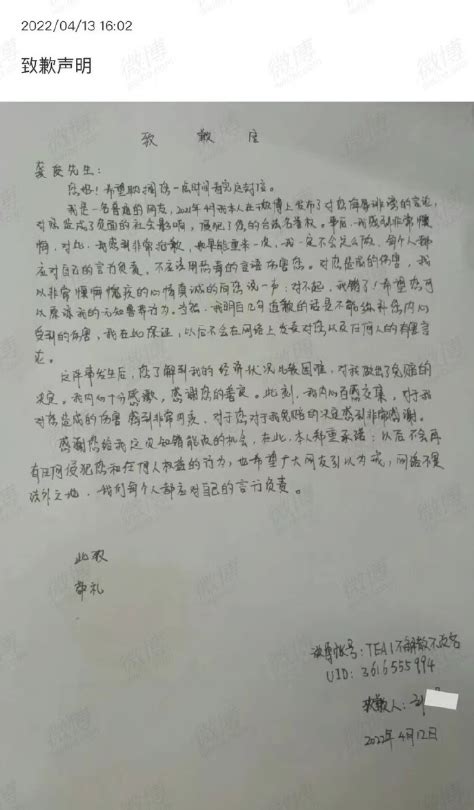 2022/04/13 16:02
致歉声明
致 歉 信
龚俊先生：
您好！希望耽搁您一点时间看完这封信。
我是一名普通的网友，2021年4月我本人在微博上发布了对您侮辱诽谤的言论，
对您造成了负面的社会影响，侵犯了您的合法名誉权。事后，我感到非常懊
悔，对此，我感到非常抱歉，如果能重来一次，我一定不会怎么做，每个人都
应对自己的言行负责，不应该用恶毒的言语伤害您。对您造成的伤害，我
以非常懊悔愧疚的心情真诚的向您说一声：对不起，我错了！希望您可
以原谅我的无知鲁莽行为。当然，我明白几句道歉的话是不能弥补您内心
受到的伤害，我在此保证，以后不会在网络上发表对您以及任何人的有害言
论。
这件事发生后，您了解到我的经济状况比较困难，对我做出了免赔的
决定。我内心十分感激，感谢您的善良。此刻，我内心百感交集，对于我
对您造成的伤害感到非常内疚，对于您对于我免赔的决定感到非常感谢。
感谢您给我这次知错能改的机会，在此，本人郑重承诺：以后不会再
有任何侵犯您和任何人权益的行为，也希望广大网友引以为戒，网络不是
法外之地，我们每个人都应对自己的言行负责。
此致
敬礼
微博账号：TEA1不解散不改名
UID：3616555994
致歉人：
2022年4月12日